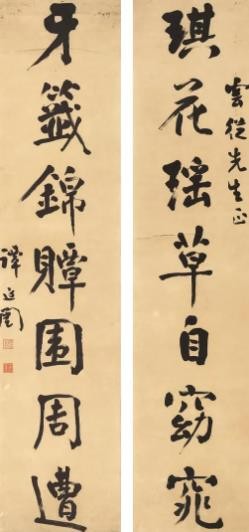 雲從先生正
琪花瑶草自窈窕
牙籤錦贉围周遭
譚延闓